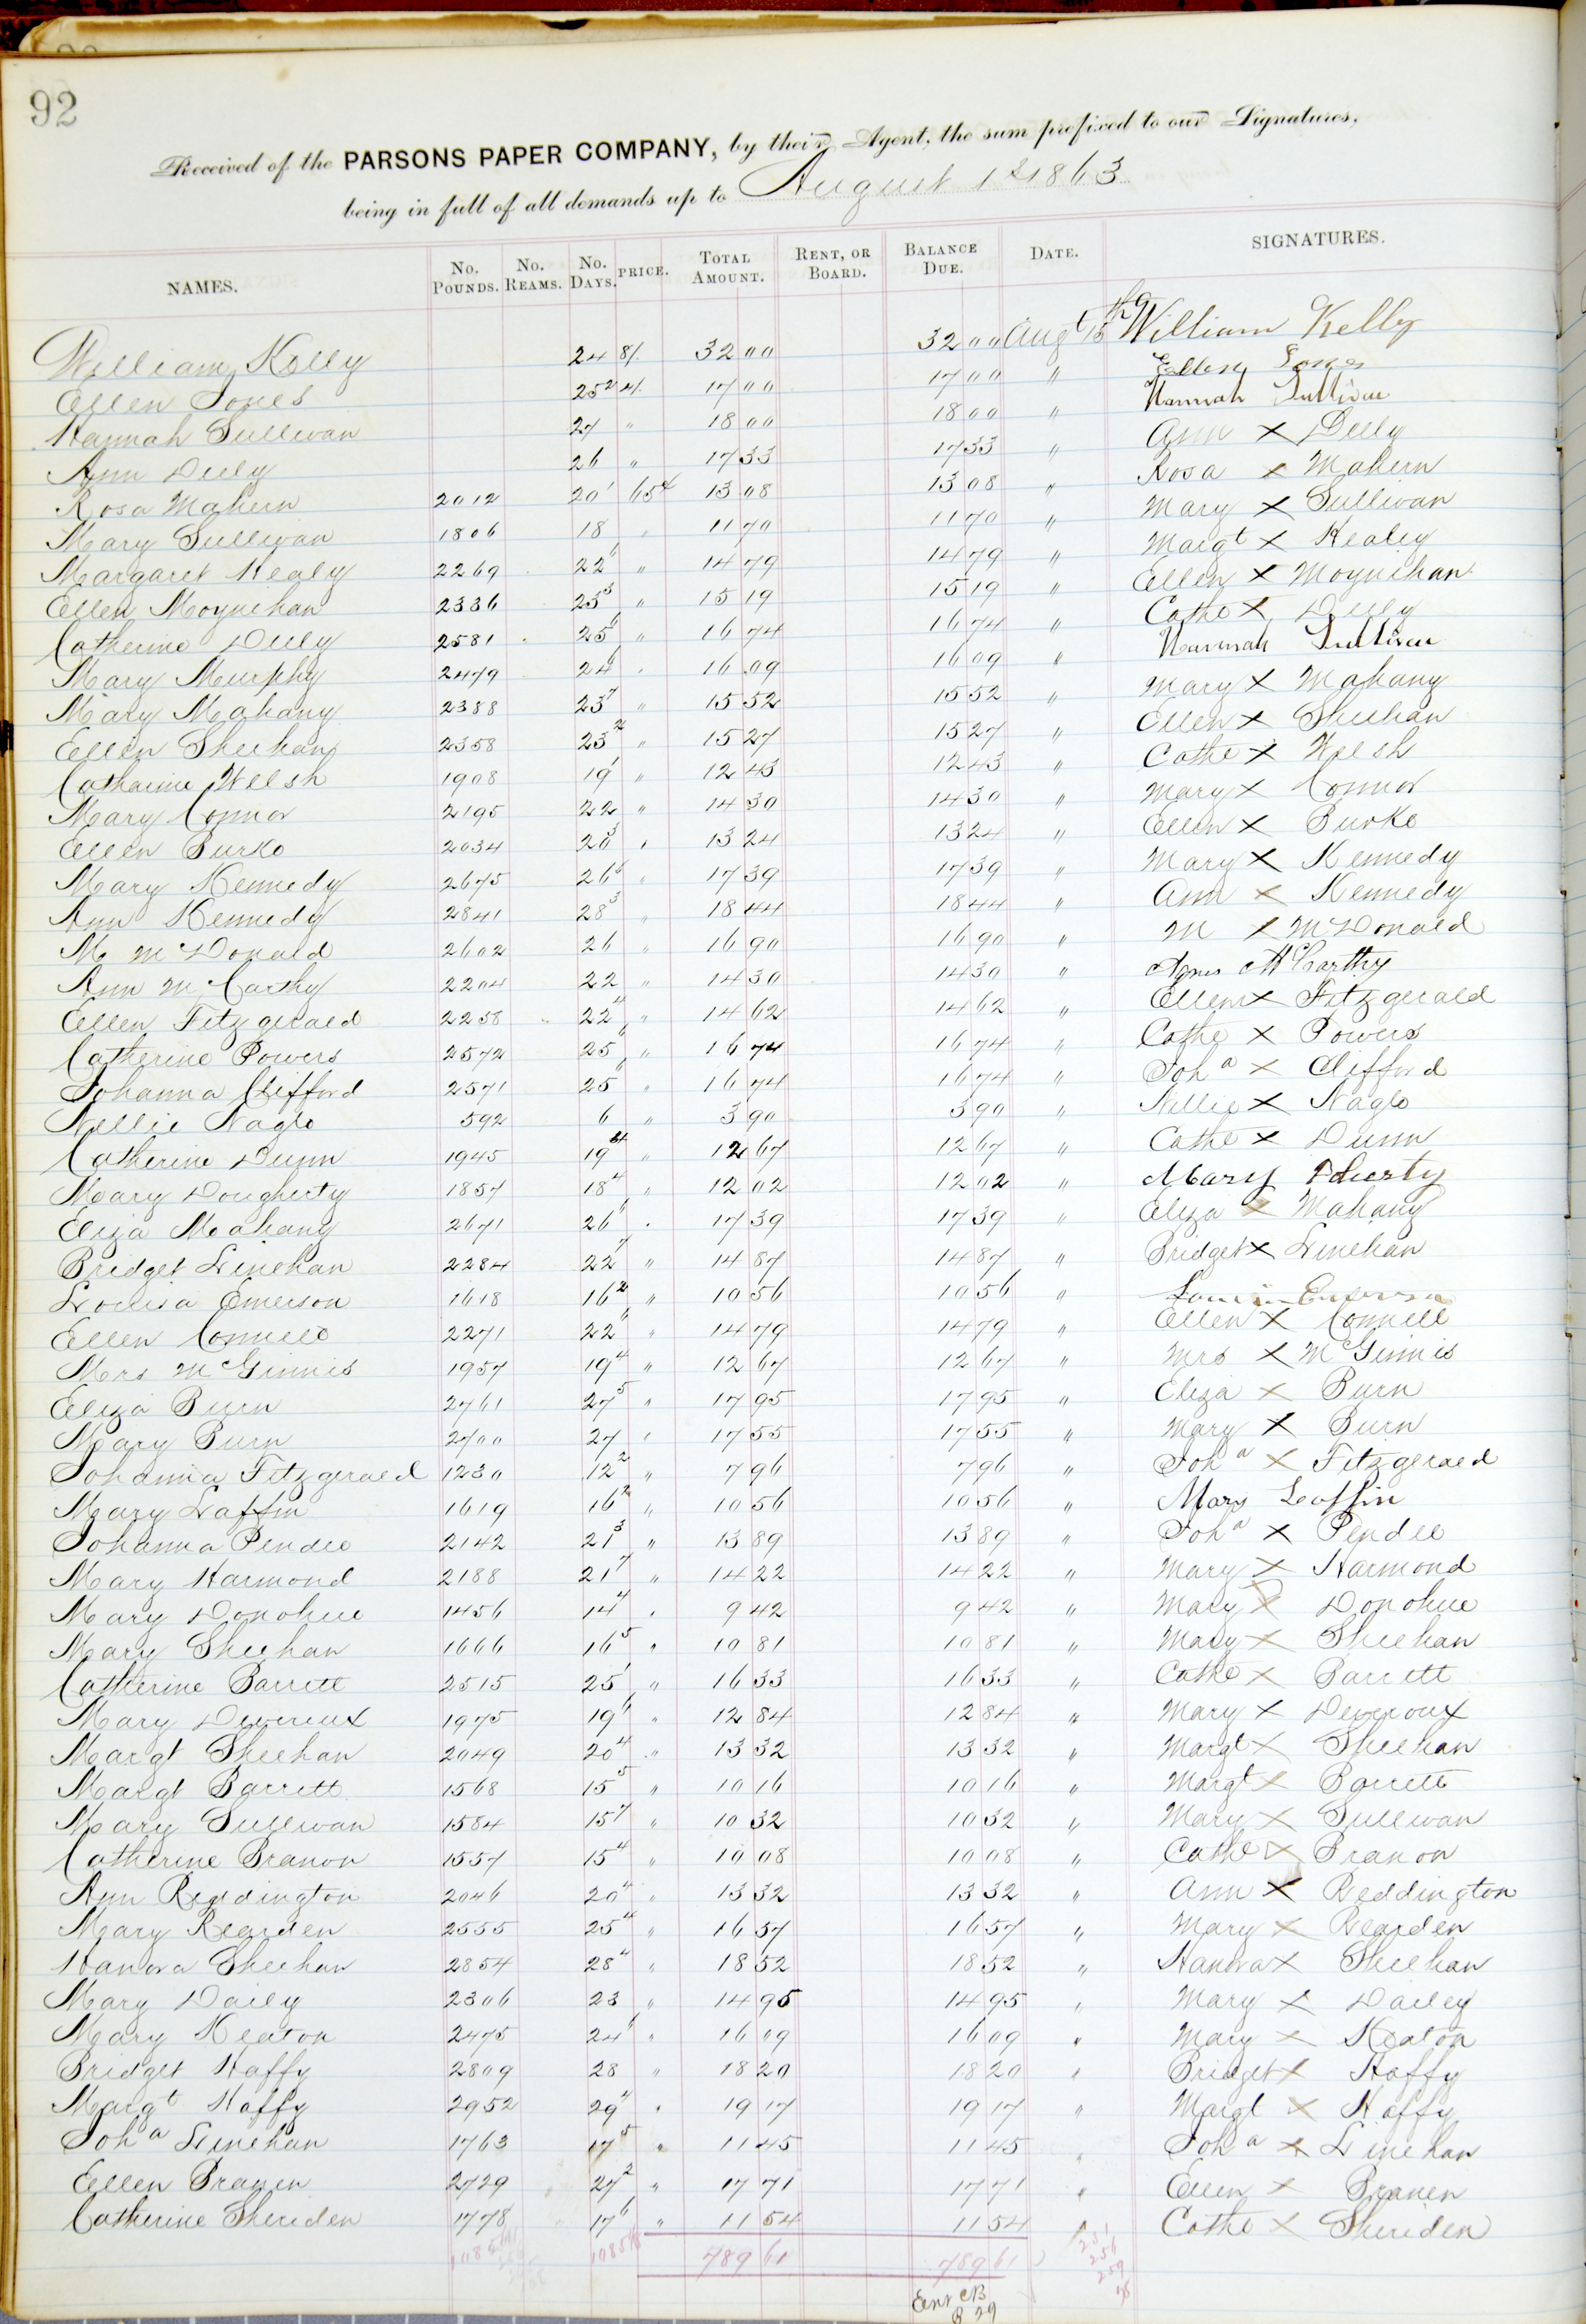 92
Received of the PARSONS PAPER COMPANY, by their Agent, the sum prefixed to our Signatures,
being in full of all demands up to August 1st 1863
NAMES. No. POUNDS. No. REAMS. No. DAYS. PRICE. TOTAL AMOUNT. RENT, OR BOARD. BALANCE DUE. DATE. SIGNATURES.
William Kelly 24 8/ 32 00 32 00 Augt 15th William Kelly
Ellen Jones 25 2 4/ 17 00 17 00 " Ellen Jones
Hannah Sullivan 27 " 18 00 18 00 " Hannah Sullivan
Ann Dily 26 " 17 33 17 33 " Ann X Dily
Rosa Mahern 2012 20 1 65 4 13 08 13 08 " Rosa X Mahern
Mary Sullivan 1806 18 " 11 70 11 70 " Mary X Sullivan
Margaret Healy 2269 22 6 " 14 79 14 79 " Margt X Healey
Ellen Moynihan 2336 23 3 " 15 19 15 19 " Ellen X Moynihan
Catherine Dily 2581 25 6 " 16 74 16 74 " Cathe X Dily
Mary Murphy 2479 24 6 " 16 09 16 09 " Hannah Sullivan
Mary Mahany 2388 23 7 " 15 52 15 52 " Mary X Mahany
Ellen Sheehan 2358 23 2 " 15 27 15 27 " Ellen X Sheehan
Catharine Welsh 1908 19 1 " 12 43 12 43 " Cathe X Welsh
Mary Connor 2195 22 " 14 30 14 30 " Mary X Connor
Ellen Burke 2034 20 3 " 13 24 13 24 " Ellen X Burke
Mary Kennedy 2675 26 6 " 17 39 17 39 " Mary X Kennedy
Ann Kennedy 2841 28 3 " 18 44 18 44 " Ann X Kennedy
M McDonald 2602 26 " 16 90 16 90 " M X McDonald
Ann McCarthy 2204 22 " 14 30 14 30 " Agnes McCarthy
Ellen Fitzgerald 2258 22 4 " 14 62 14 62 " Ellen X Fitzgerald
Catherine Powers 2572 25 6 " 16 74 16 74 " Cathe X Powers
Johanna Clifford 2571 25 6 " 16 74 16 74 " Joha X Clifford
Nellie Nagle 592 6 " 3 90 3 90 " Nellie X Nagle
Catherine Dunn 1945 19 4 " 12 67 12 67 " Cathe X Dunn
Mary Dougherty 1857 18 4 " 12 02 12 02 " Mary Dherty
Eliza Mahany 2671 26 6 " 17 39 17 39 " Eliza X Mahany
Bridget Linehan 2284 22 7 " 14 87 14 87 " Bridget X Linehan
Louisa Emerson 1618 16 2 " 10 56 10 56 " Louisa Emerson
Ellen Connell 2271 22 6 " 14 79 14 79 " Ellen X Connell
Mrs McGinnis 1957 19 4 " 12 67 12 67 " Mrs X McGinnis
Eliza Burn 2761 27 5 " 17 95 17 95 " Eliza X Byrn
Mary Burn 2700 27 " 17 55 17 55 " Mary X Burn
Johanna Fitzgerald 1230 12 2 " 7 96 7 96 " Joha X Fitzgerald
Mary Laffin 1619 16 2 " 10 56 10 56 " Mary Laffin
Johanna Pendee 2142 21 3 " 13 89 13 89 " Joha X Pendee
Mary Harmond 2188 21 7 " 14 22 14 22 " Mary X Harmond
Mary Donohue 1456 14 4 " 9 42 9 42 " Mary X Donohue
Mary Sheehan 1666 16 5 " 10 81 10 81 " Mary X Sheehan
Catherine Barrett 2515 25 1 " 16 33 16 33 " Cathe X Barrett
Mary Devereux 1975 19 6 " 12 84 12 84 " Mary X Deveroux
Margt Sheehan 2049 20 4 " 13 32 13 32 " Margt X Sheehan
Margt Barrett 1568 15 5 " 10 16 10 16 " Margt X Barrett
Mary Sullivan 1584 15 7 " 10 32 10 32 " Mary X Sullivan
Catherine Branon 1557 15 4 " 10 08 10 08 " Cathe X Branon
Ann Reddington 2046 20 4 " 13 32 13 32 " Ann X Reddington
Mary Rearden 2555 25 4 " 16 57 16 57 " Mary X Rearden
Hanora Sheehan 2854 28 4 " 18 52 18 52 " Hanora X Sheehan
Mary Daily 2306 23 " 14 95 14 95 " Mary X Dailey
Mary Keaton 2475 24 6 " 16 09 16 09 " Mary X Keaton
Bridget Haffy 2809 28 " 18 20 18 20 " Bridget X Haffy
Margt Haffy 2952 29 4 " 19 17 19 17 " Margt X Haffy
Joha Linehan 1763 17 5 " 11 45 11 45 " Joha X Linehan
Ellen Branen 2729 27 2 " 17 71 17 71 " Ellen X Branen
Catherine Sheriden 1778 17 6 " 11 54 11 54 " Cathe X Sheriden
789 61 789 61
Ent CB
8 29